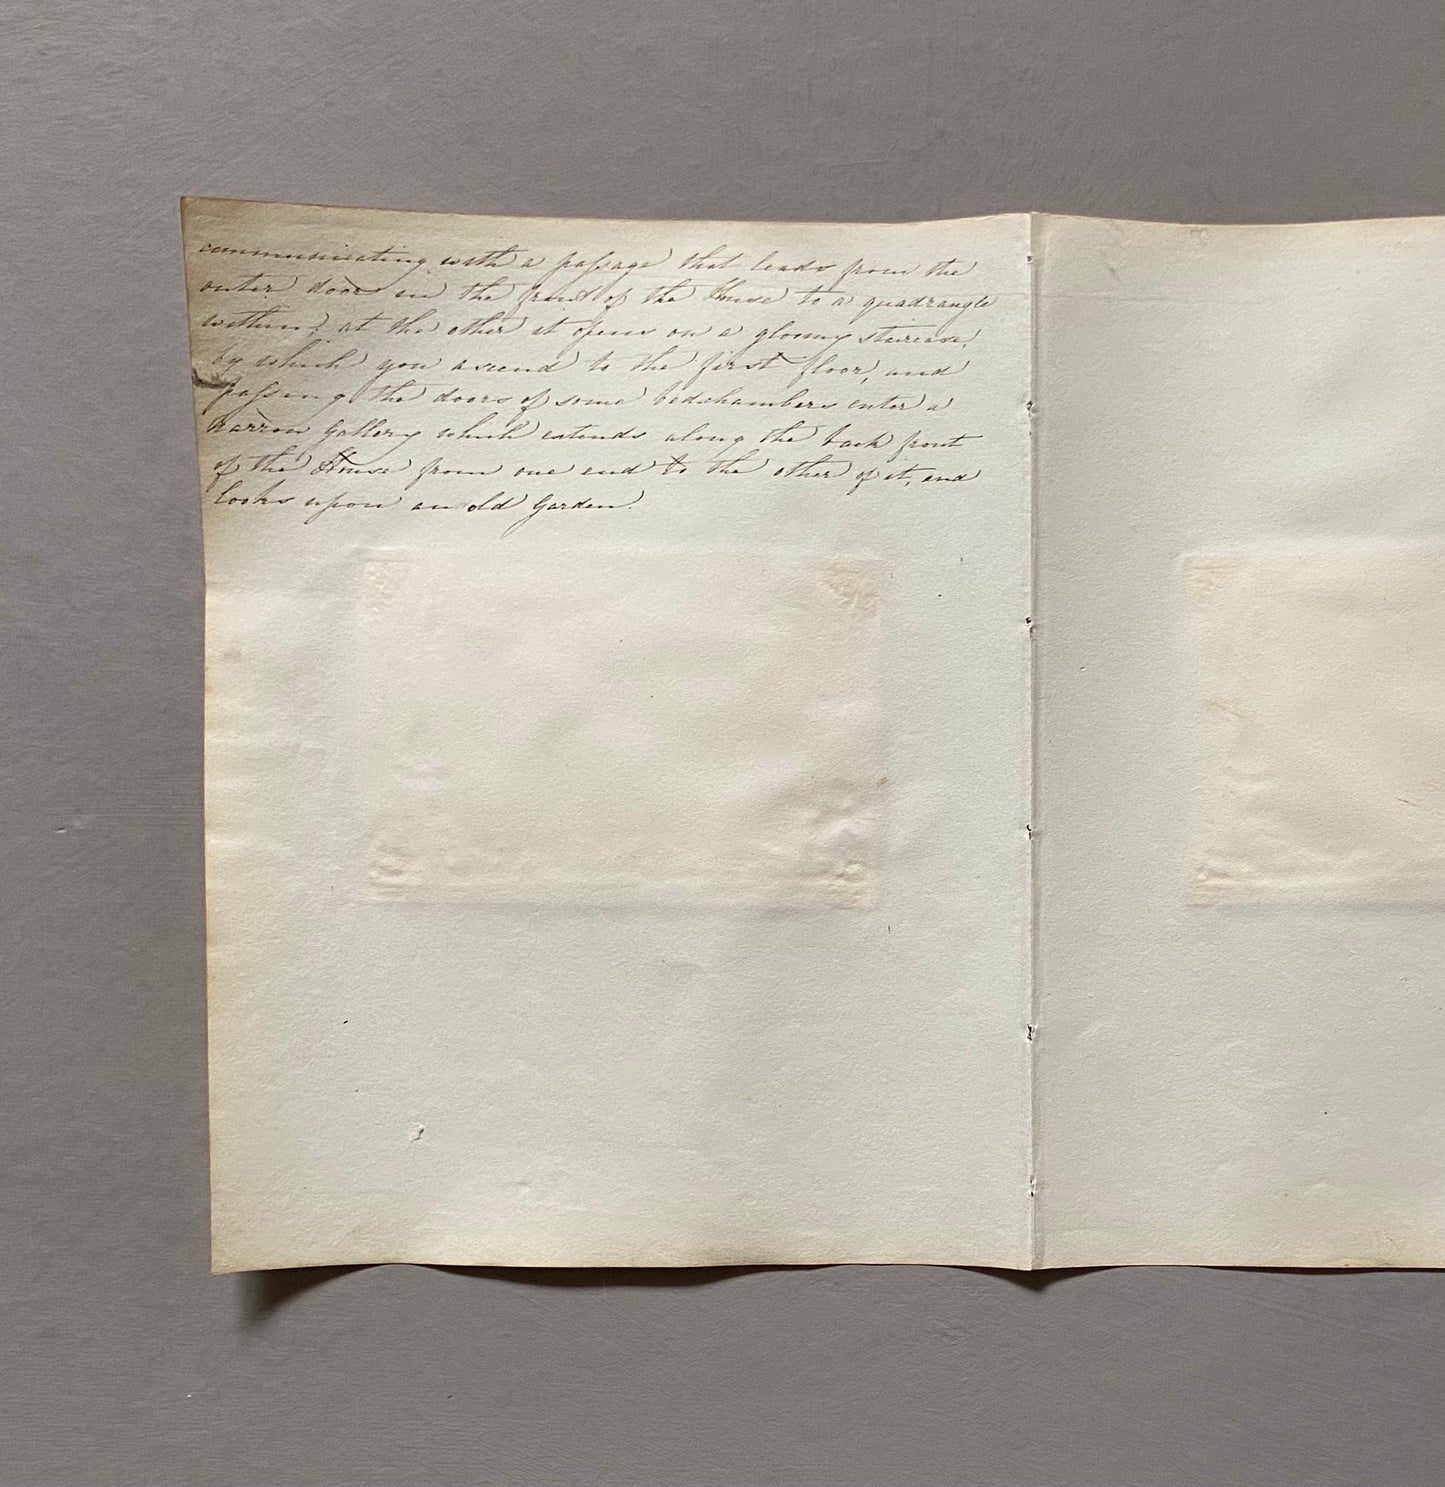 communicating with a passage that leads from the
outer door in the front of the House to a quadrangle
within: at the other it opens on a gloomy staircase,
by which you ascend to the first floor, and
passing the doors of some bedchambers enter a
narrow Gallery which extends along the back front
of the House from one end to the other of it, and
looks upon an old Garden.